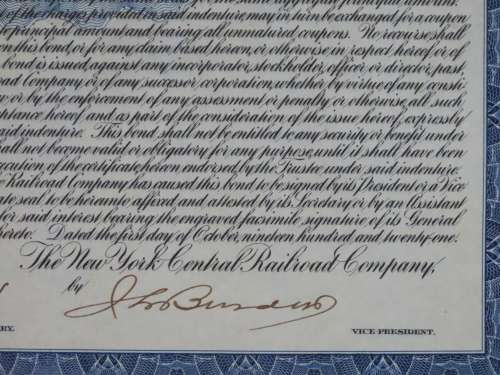 of the charges provided in said indenture may in turn be exchanged for a coupon
principal amount and bearing all unmatured coupons. No recourse shall
on this bond, or for any claim based hereon, or otherwise in respect hereof or of
bond is issued against any incorporator, stockholder, officer or director, past,
oad Company or of any successor corporation, whether by virtue of any consti
or by the enforcement of any assessment or penalty or otherwise, all such
ptance hereof and as part of the consideration of the issue hereof, expressly
said indenture. This bond shall not be entitled to any security or benefit under
all not become valid or obligatory for any purpose, until it shall have been
ecution of the certificate hereon endorsed by the Trustee under said indenture.
Railroad Company has caused this bond to be signed by its President or a Vice
ate seal to be hereunto affixed and attested by its Secretary or by an Assistant
for said interest bearing the engraved facsimile signature of its General
hereto. Dated the first day of October, nineteen hundred and twenty-one.
The New York Central Railroad Company,
by
RY.
VICE-PRESIDENT.